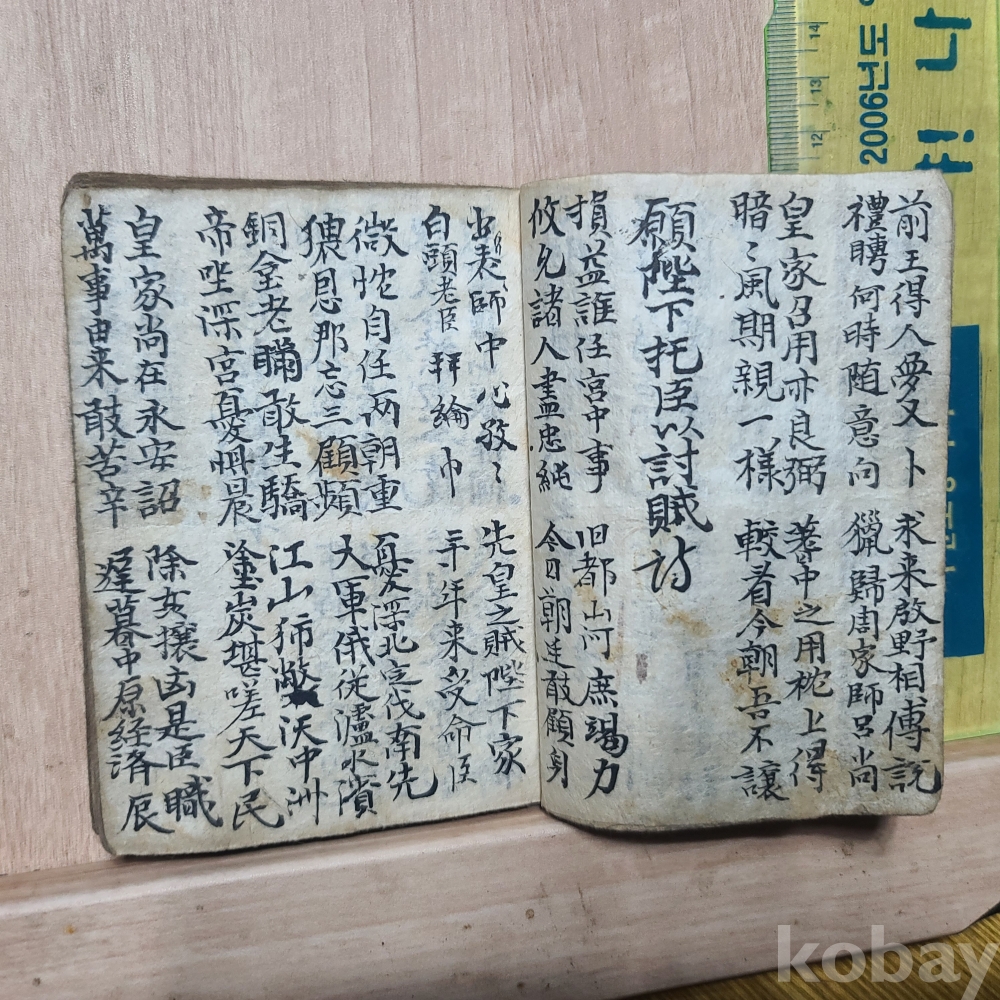 前王得人夢又卜 求来啟野相傅說
禮聘何時随意向 獵歸周家師呂尚
皇家召用亦良弼 蓍中之用枕上得
暗〻風期親一樣 較看今朝吾不讓
願陛下托臣以討賊詩
損益誰任宮中事 旧都山河庶竭力
攸允諸人盡忠純 今日朝廷敢顧身
出表師中心敬〻 先皇之賊陛下家
白頭老臣拜綸巾 三年来受命臣
微忱自任兩朝重 憂深北定伐南先
猥恩那忘三顧頻 大軍俄従瀘水濱
銅金老瞞敢生驕 江山疲弊沃中洲
帝坐深宮憂惧晨 塗炭堪嗟天下民
皇家尚在永安詔 除姦攘凶是臣職
萬事由来敢苦辛 遅暮中原経済辰
2006년도
14
13
12
kobay